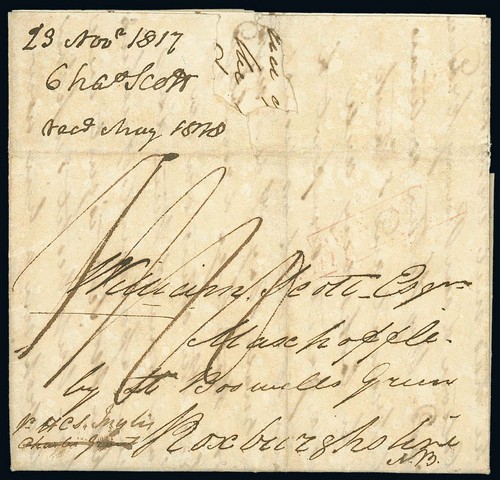 23 Novr 1817
Chas Scott
recd May 1818
William Scott Esqr
Maxpoffle
by St Boswells Green
pr HCS. Inglis
Roxburghshire
N.B.